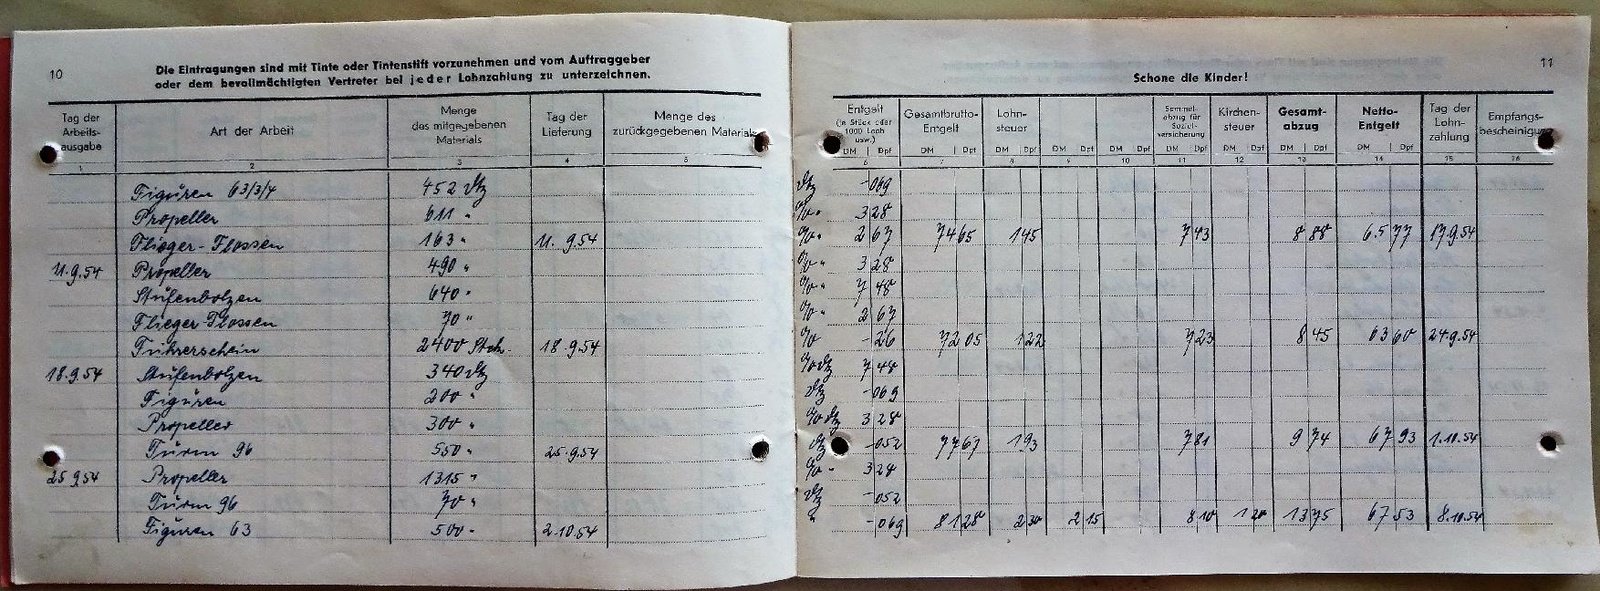 10
Die Eintragungen sind mit Tinte oder Tintenstift vorzunehmen und vom Auftraggeber
oder dem bevollmächtigten Vertreter bei jeder Lohnzahlung zu unterzeichnen.
Tag der Arbeitsausgabe Art der Arbeit Menge des mitgegebenen Materials Tag der Lieferung Menge des zurückgegebenen Materials
1 2 3 4 5
Figuren 63/3/4 452 Dtz
Propeller 611 "
Flieger-Flossen 163 " 11.9.54
11.9.54 Propeller 490 "
Stufenbolzen 640 "
Flieger-Flossen 70 "
Führerschein 2400 Stck. 18.9.54
18.9.54 Stufenbolzen 340 Dtz
Figuren 200 "
Propeller 300 "
Turm 96 550 " 25.9.54
25.9.54 Propeller 1315 "
Turm 96 70 "
Figuren 63 500 " 2.10.54
11
Schone die Kinder!
Entgelt (in Stück oder 1000 Loch usw.) Gesamtbrutto-Entgelt Lohnsteuer Sammelabzug für Sozialversicherung Kirchensteuer Gesamtabzug Netto-Entgelt Tag der Lohnzahlung Empfangsbescheinigung
DM Dpf DM Dpf DM Dpf DM Dpf DM Dpf DM Dpf DM Dpf DM Dpf DM Dpf
6 7 8 9 10 11 12 13 14 15 16
Dtz -069
3 28
2 67 74 65 1 45 7 43 8 88 65 77 17.9.54
3 28
7 48
2 67
-26 72 05 1 22 7 23 8 45 63 60 24.9.54
7 48
Dtz -069
3 28
Dtz -052 77 67 1 93 7 81 9 74 67 93 1.10.54
3 28
Dtz -052
" -069 81 28 2 30 2 15 8 10 1 20 13 75 67 53 8.10.54